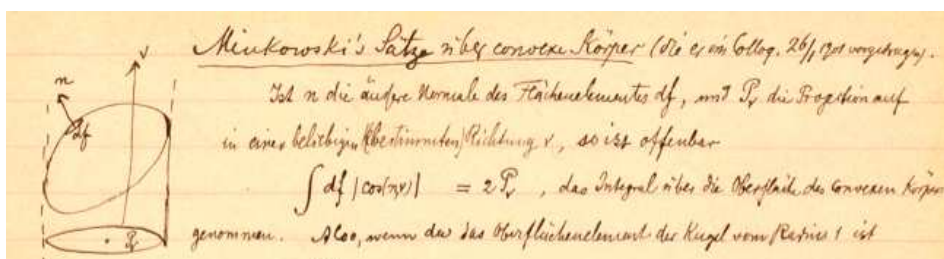 Minkowski's Sätze über convexe Körper (die er im Colloq. 26/1 1901 vorgetragen).
Ist n die äußere Normale des Flächenelementes df, und Pᵥ die Projection auf
in einer beliebigen (bestimmten) Richtung ν, so ist offenbar
∫ df |cos(nν)| = 2 Pᵥ , das Integral über die Oberfläche des convexen Körper
genommen. Also, wenn dω das Oberflächenelement der Kugel vom Radius 1 ist
n
ν
df
Pᵥ